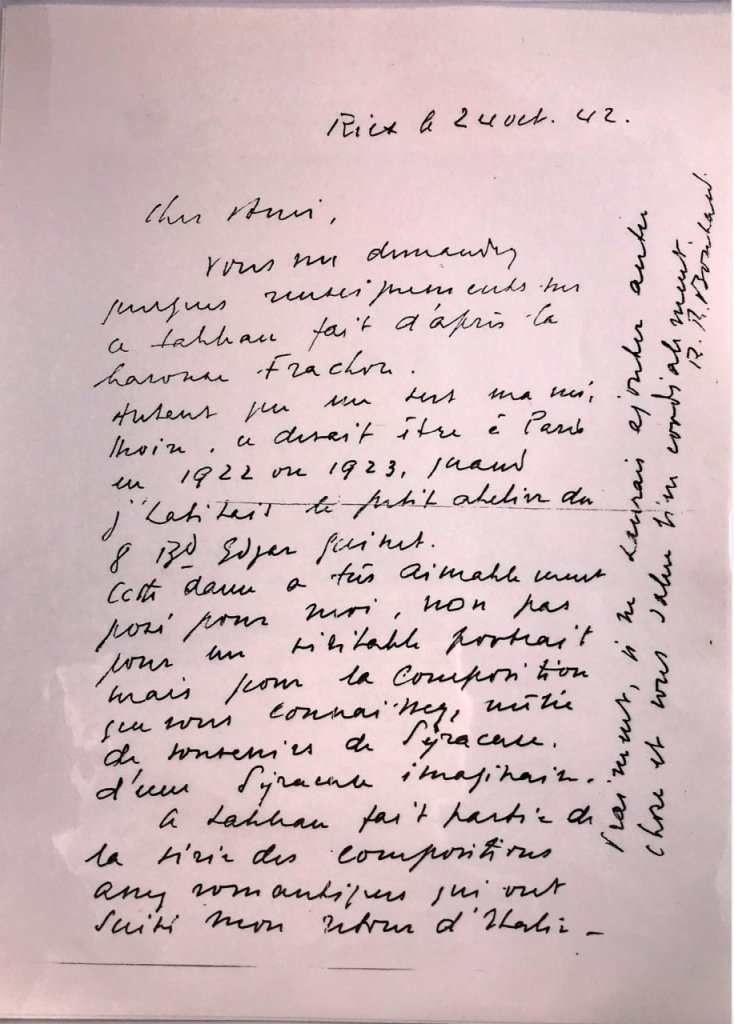 Riez le 24 oct. 42.
Cher Ami,
Vous me demandez
quelques renseignements sur
ce tableau fait d'après la
baronne Frachon.
Autant que me sert ma mé,
moire, ce devait être à Paris
en 1922 ou 1923, quand
j'habitais le petit atelier du
8 Bd Edgar Quinet.
Cette dame a très aimablement
posé pour moi, non pas
pour un véritable portrait
mais pour la composition
que vous connaissez, mêlée
de souvenirs de Syracuse.
d'une Syracuse imaginaire.
Ce tableau fait partie de
la série des compositions
assez romantiques qui ont
suivi mon retour d'Italie -
Vraiment, je ne saurais ajouter autre
chose et vous salue bien cordialement.
R.